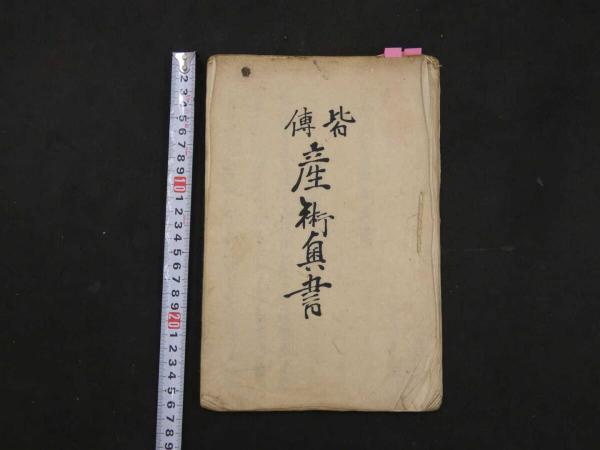 皆傳
産術奥書
2
3
4
5
6
7
8
9
10
1
2
3
4
5
6
7
8
9
20
1
2
3
4
5
6
7
8
9